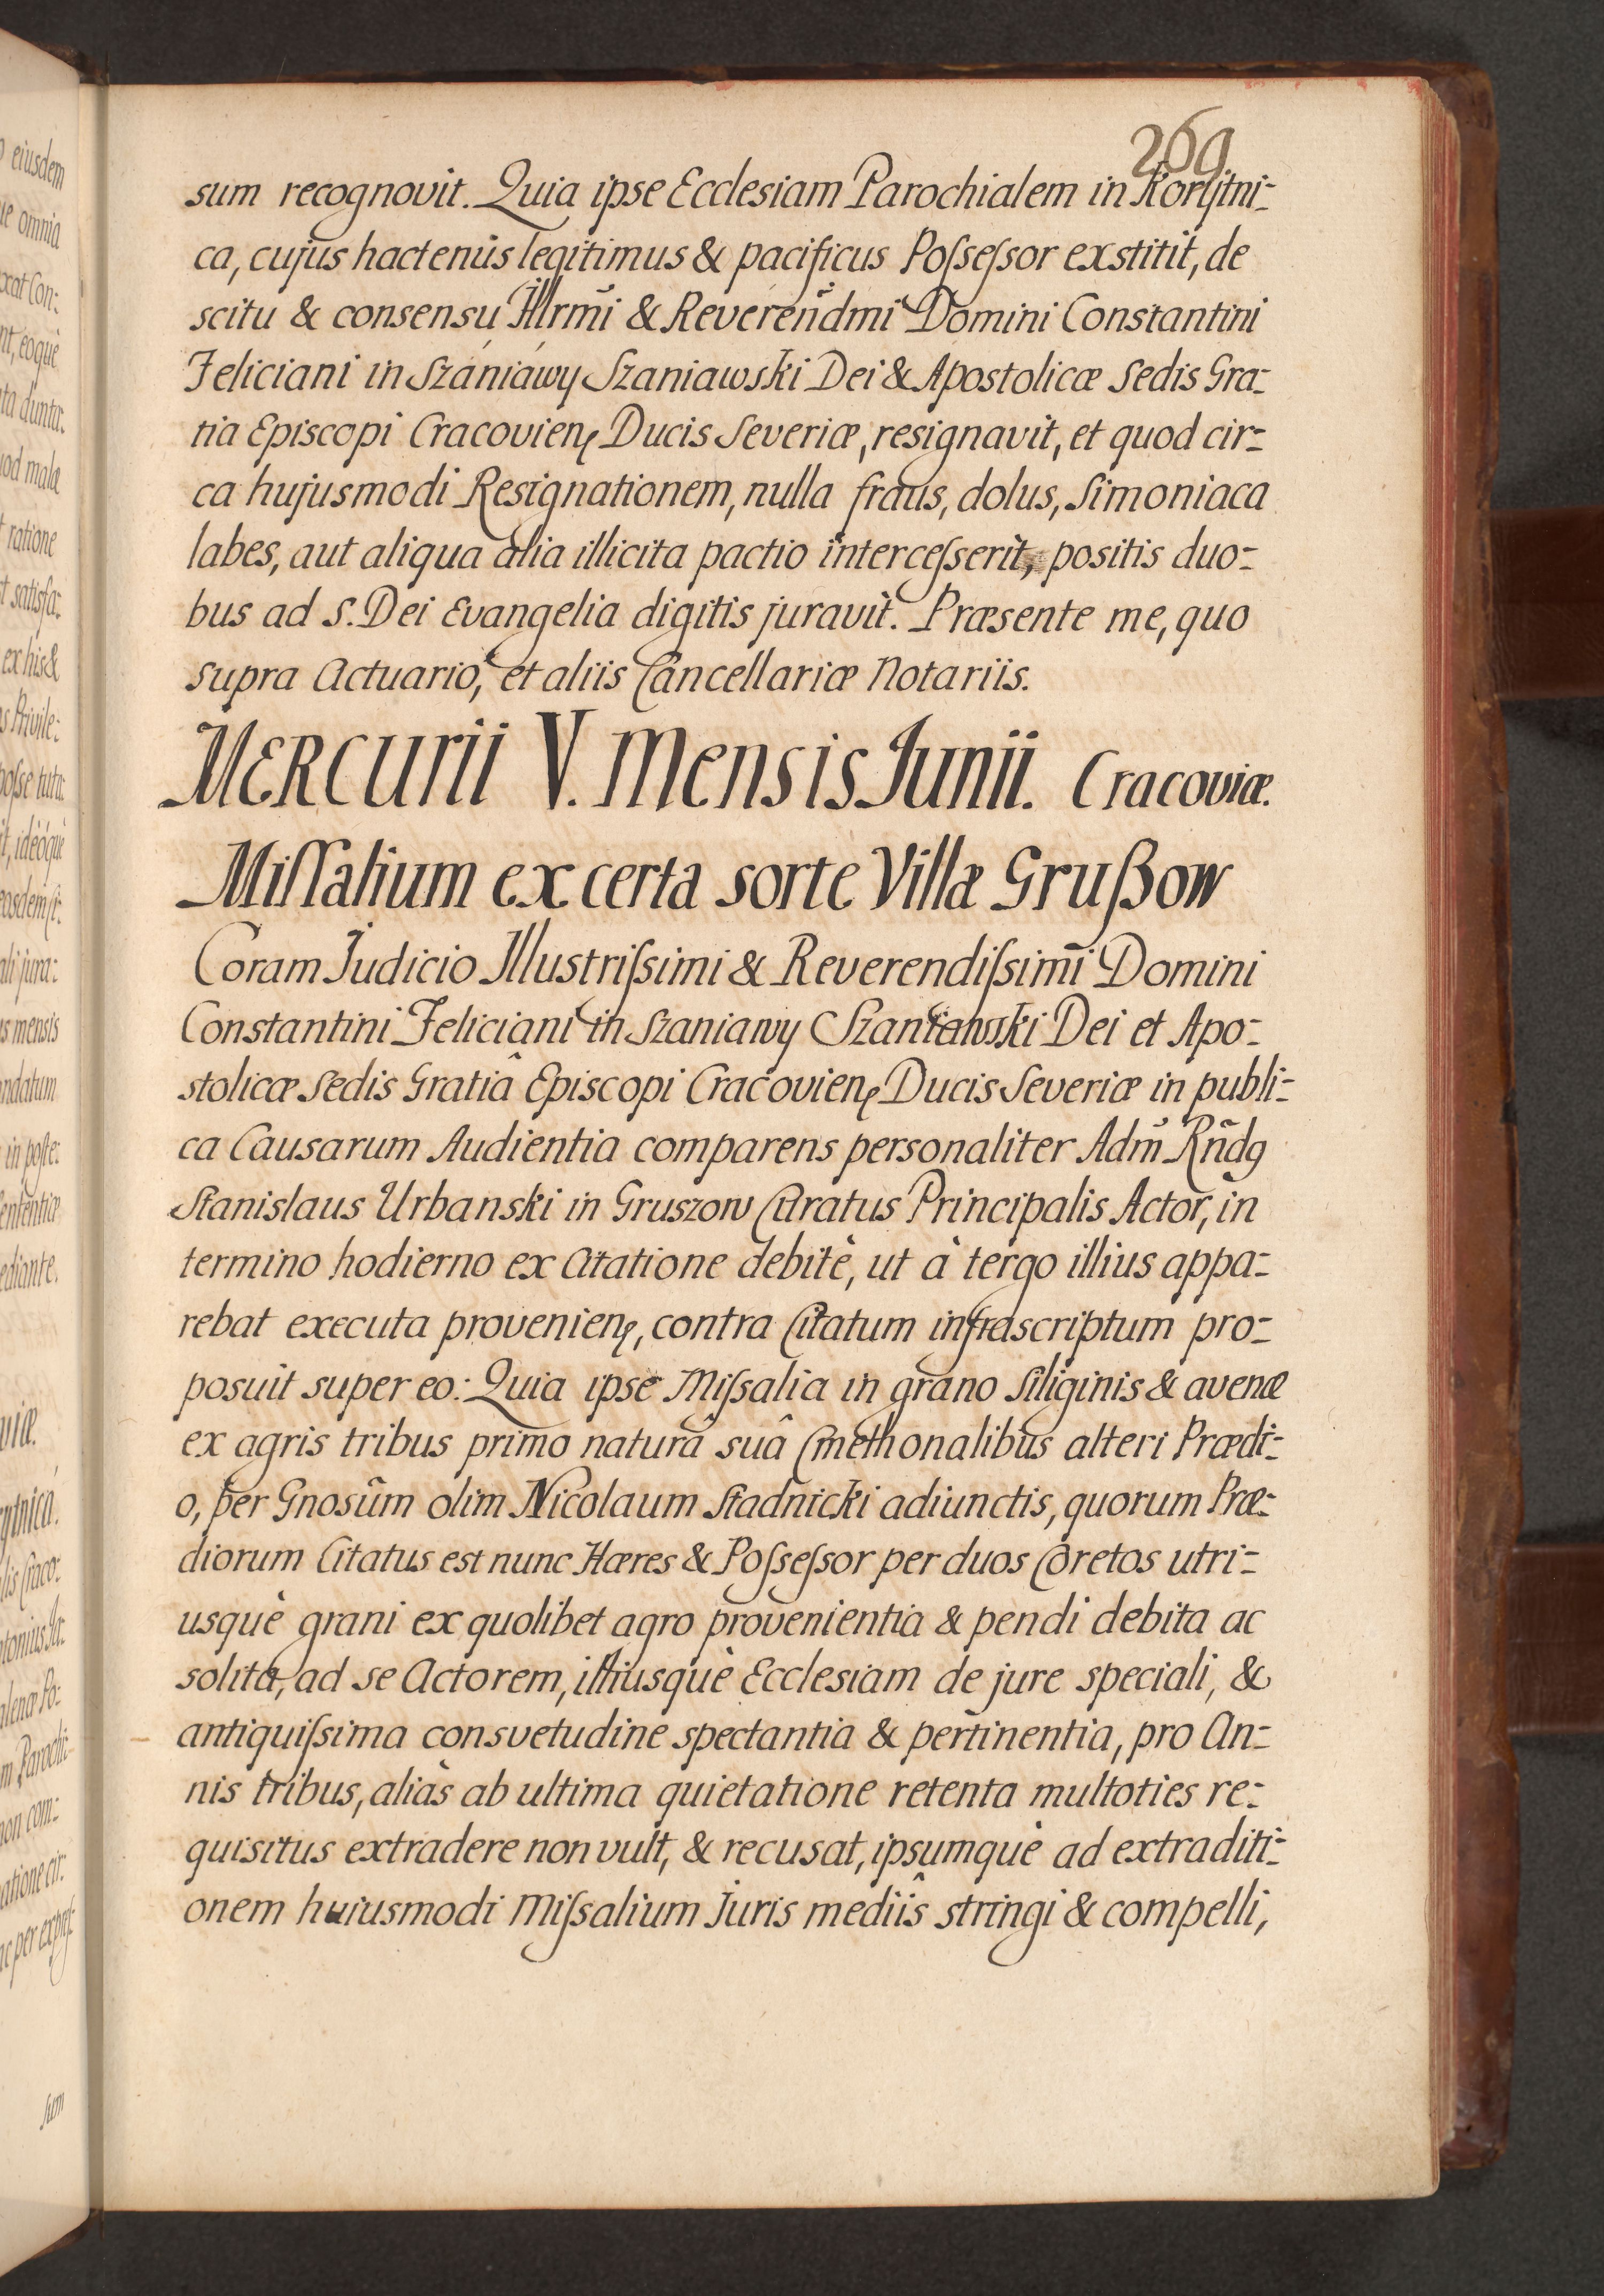 269
sum recognovit. Quia ipse Ecclesiam Parochialem in Korÿtni-
ca, cujus hactenùs legitimus & pacificus Poſseſsor exstitit, de
scitu & consensu Illrm̄i & Revereñdmi Domini Constantini
Feliciani in Szániáwy Szaniawski Dei & Apostolicæ Sedis Gra-
tia Episcopi Cracovien̨ Ducis Severiæ, resignavit, et quod cir-
ca hujusmodi Resignationem, nulla fraus, dolus, Simoniaca
labes, aut aliqua alia illicita pactio interceſserit, positis duo-
bus ad S. Dei Evangelia digitis juravit. Præsente me, quo
supra Actuario, et aliis Cancellariæ Notariis.
MERCURII V. Mensis Junii. Cracoviæ.
Miſſalium ex certa sorte Villæ Grußow
Coram Judicio Illustriſsimi & Reverendiſsim̄i Domini
Constantini Feliciani in Szaniawy Szaniawski Dei et Apo-
stolicæ Sedis Gratiâ Episcopi Cracovien̨ Ducis Severiæ in publi-
ca Causarum Audientia comparens personaliter Adm̃ Rñdg
Stanislaus Urbanski in Gruszow Curatus Principalis Actor, in
termino hodierno ex Citatione debitè, ut à tergo illius appa-
rebat executa provenien̨, contra Citatum infrascriptum pro-
posuit super eo: Quia ipse Miſsalia in grano Siliginis & avenæ
ex agris tribus primo naturâ suâ Cmethonalibus alteri Prædi-
o, per Gnosũm olim Nicolaum Stadnicki adiunctis, quorum Præ-
diorum Citatus est nunc Hæres & Poſseſsor per duos Coretos utri-
usquè grani ex quolibet agro provenientia & pendi debita ac
solita, ad se Actorem, illiusquè Ecclesiam de jure speciali, &
antiquiſsima consvetudine spectantia & pertinentia, pro An-
nis tribus, aliàs ab ultima quietatione retenta multoties re-
quisitus extradere non vult, & recusat, ipsumquè ad extraditi-
onem huiusmodi Miſsalium Juris mediîs stringi & compelli,